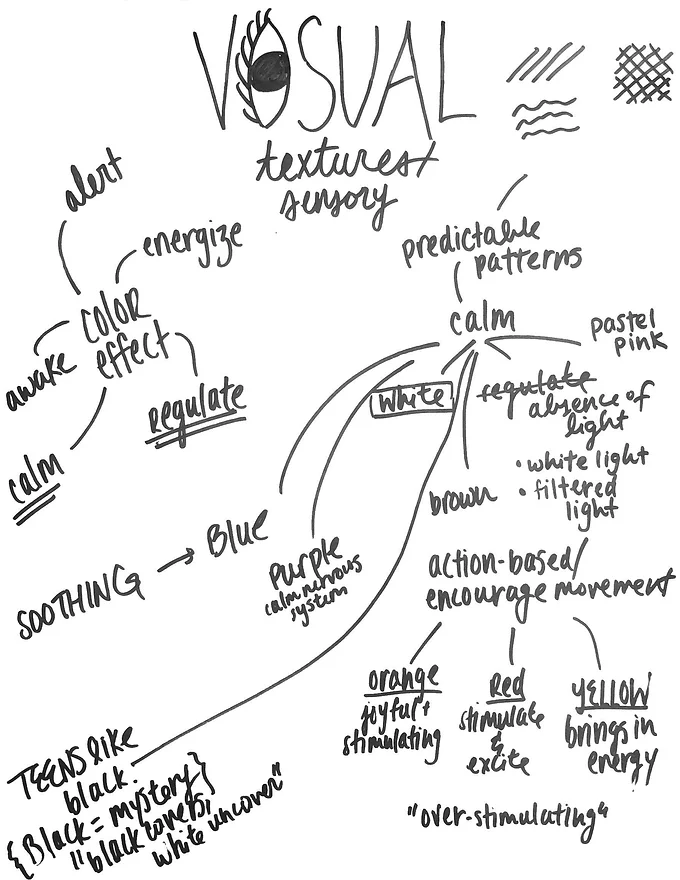 VISUAL
textures +
sensory
alert
energize
color
effect
awake
regulate
calm
predictable
patterns
calm
pastel
pink
white
regulate
absence of
light
• white light
• filtered
light
brown
Blue
SOOTHING →
purple
calm nervous
system
action-based/
encourage movement
orange
joyful +
stimulating
Red
stimulate
&
excite
YELLOW
brings in
energy
"over-stimulating"
TEENS like
black.
{Black = mystery}
"black covers,
white uncover"